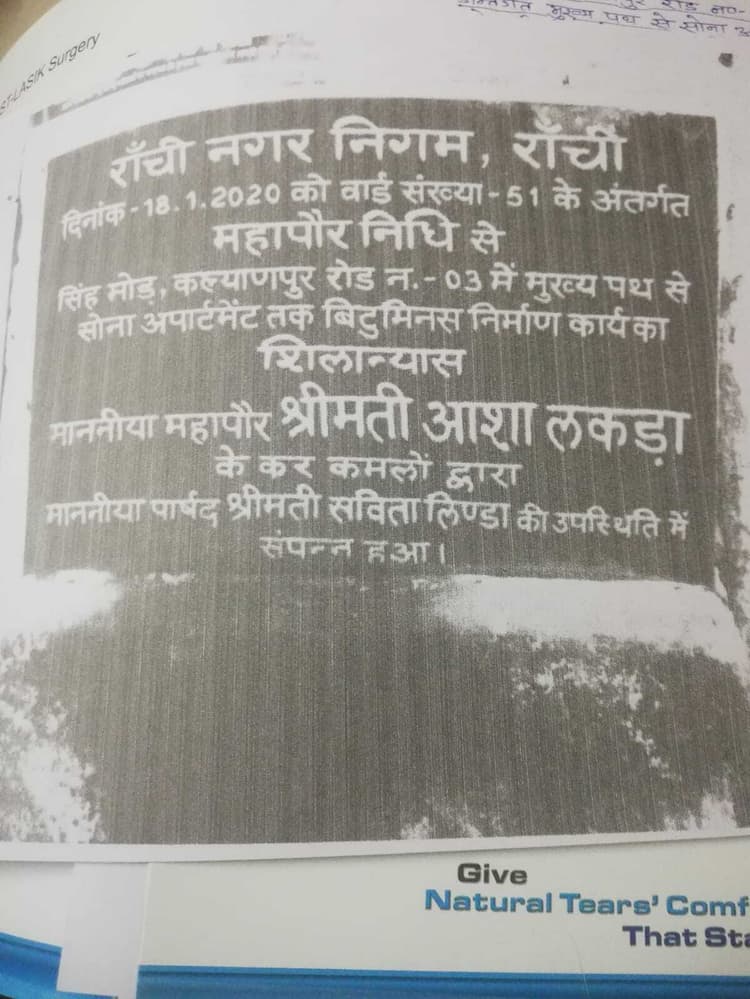 ST-LASIK Surgery
रोड नण-
मुख्य पथ से सोना
राँची नगर निगम, राँची
दिनांक-18.1.2020 को वार्ड संख्या-51 के अंतर्गत
महापौर निधि से
सिंह मोड़, कल्याणपुर रोड न.-03 में मुख्य पथ से
सोना अपार्टमेंट तक बिटुमिनस निर्माण कार्य का
शिलान्यास
माननीया महापौर श्रीमती आशा लकड़ा
के कर कमलों द्वारा
माननीया पार्षद श्रीमती सविता लिण्डा की उपस्थिति में
संपन्न हुआ।
Give
Natural Tears' Comf
That Sta